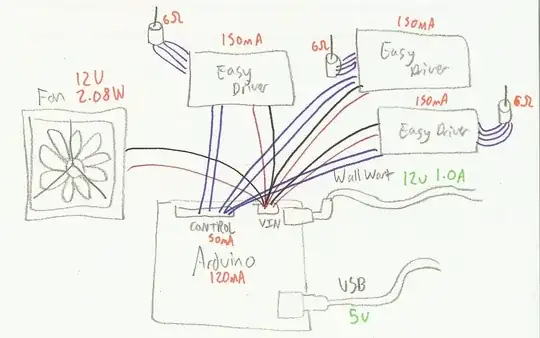 6Ω
150mA
Easy
Driver
6Ω
150mA
Easy
Driver
12V
Fan 2.08W
150mA
Easy Driver
6Ω
Wall Wart 12V 1.0A
CONTROL
50mA
VIN
Arduino
120mA
USB
5V